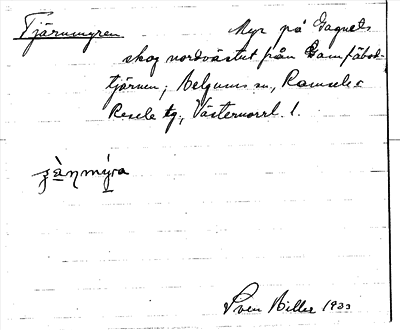 Tjärnmyren Myr på Gagnets
skog nordvästut från Gamfäbod-
tjärnen; Helgums sn, Ramsele o
Resele tg, Västernorrl. l.
Sven Biller 1933